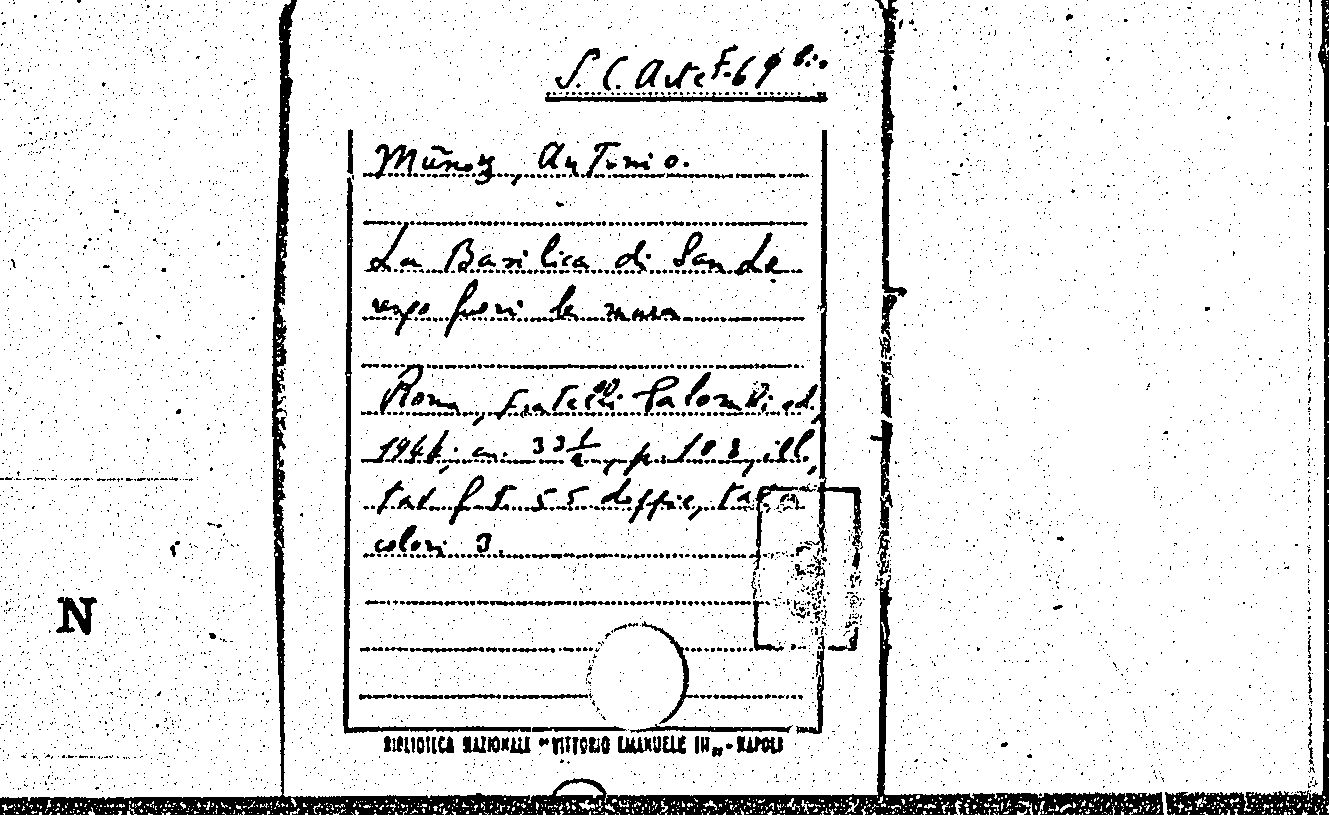 S. C. Arte F. 69 bis
Muñoz, Antonio.
La Basilica di San Lo
renzo fuori le mura
Roma, Fratelli Palombi ed.,
1944, cm. 33½, p. 108, ill.,
tav. f. t. 55 doppie, tav. a
colori 3.
N
BIBLIOTECA NAZIONALE "VITTORIO EMANUELE III" - NAPOLI